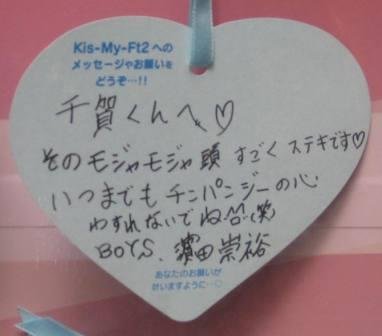 Kis-My-Ft2への
メッセージやお願いを
どうぞ…!!
千賀くんへ♡
そのモジャモジャ頭 すごく ステキです♡
いつまでも チンパンジーの心
わすれないでね(笑)
BOYS. 濵田崇裕
あなたのお願いが
叶いますように…♡